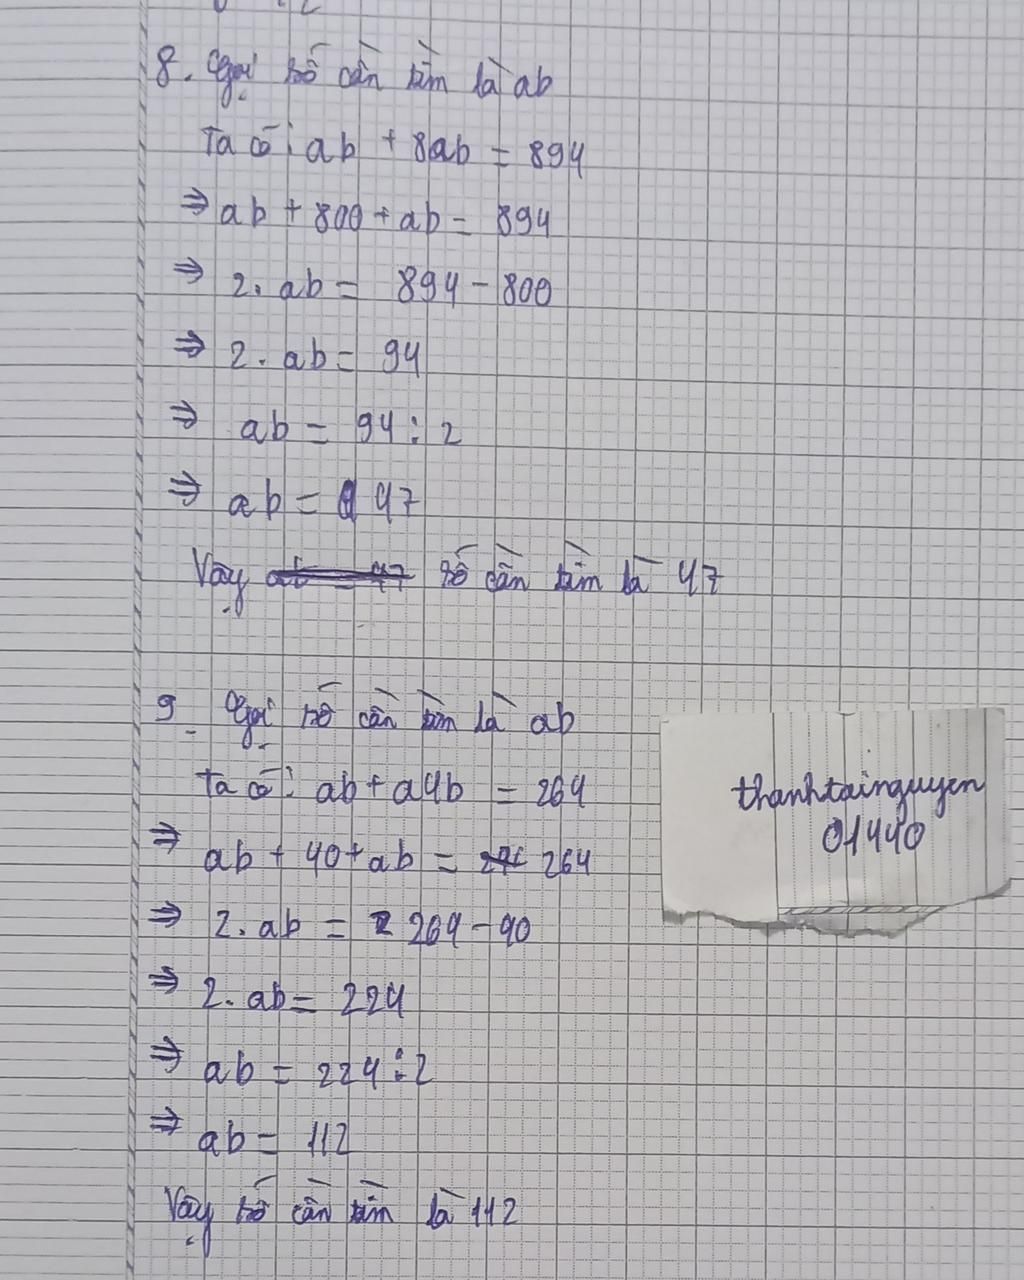 8. Gọi số cần tìm là ab
Ta có: ab + 8ab = 894
⇒ ab + 800 + ab = 894
⇒ 2. ab = 894 - 800
⇒ 2. ab = 94
⇒ ab = 94 : 2
⇒ ab = 47
Vậy ab = 47 số cần tìm là 47
9. Gọi số cần tìm là ab
Ta có: ab + a4b = 264
⇒ ab + 40 + ab = 264
⇒ 2. ab = 264 - 40
⇒ 2. ab = 224
⇒ ab = 224 : 2
⇒ ab = 112
Vậy số cần tìm là 112
thanhtainguyen
01440